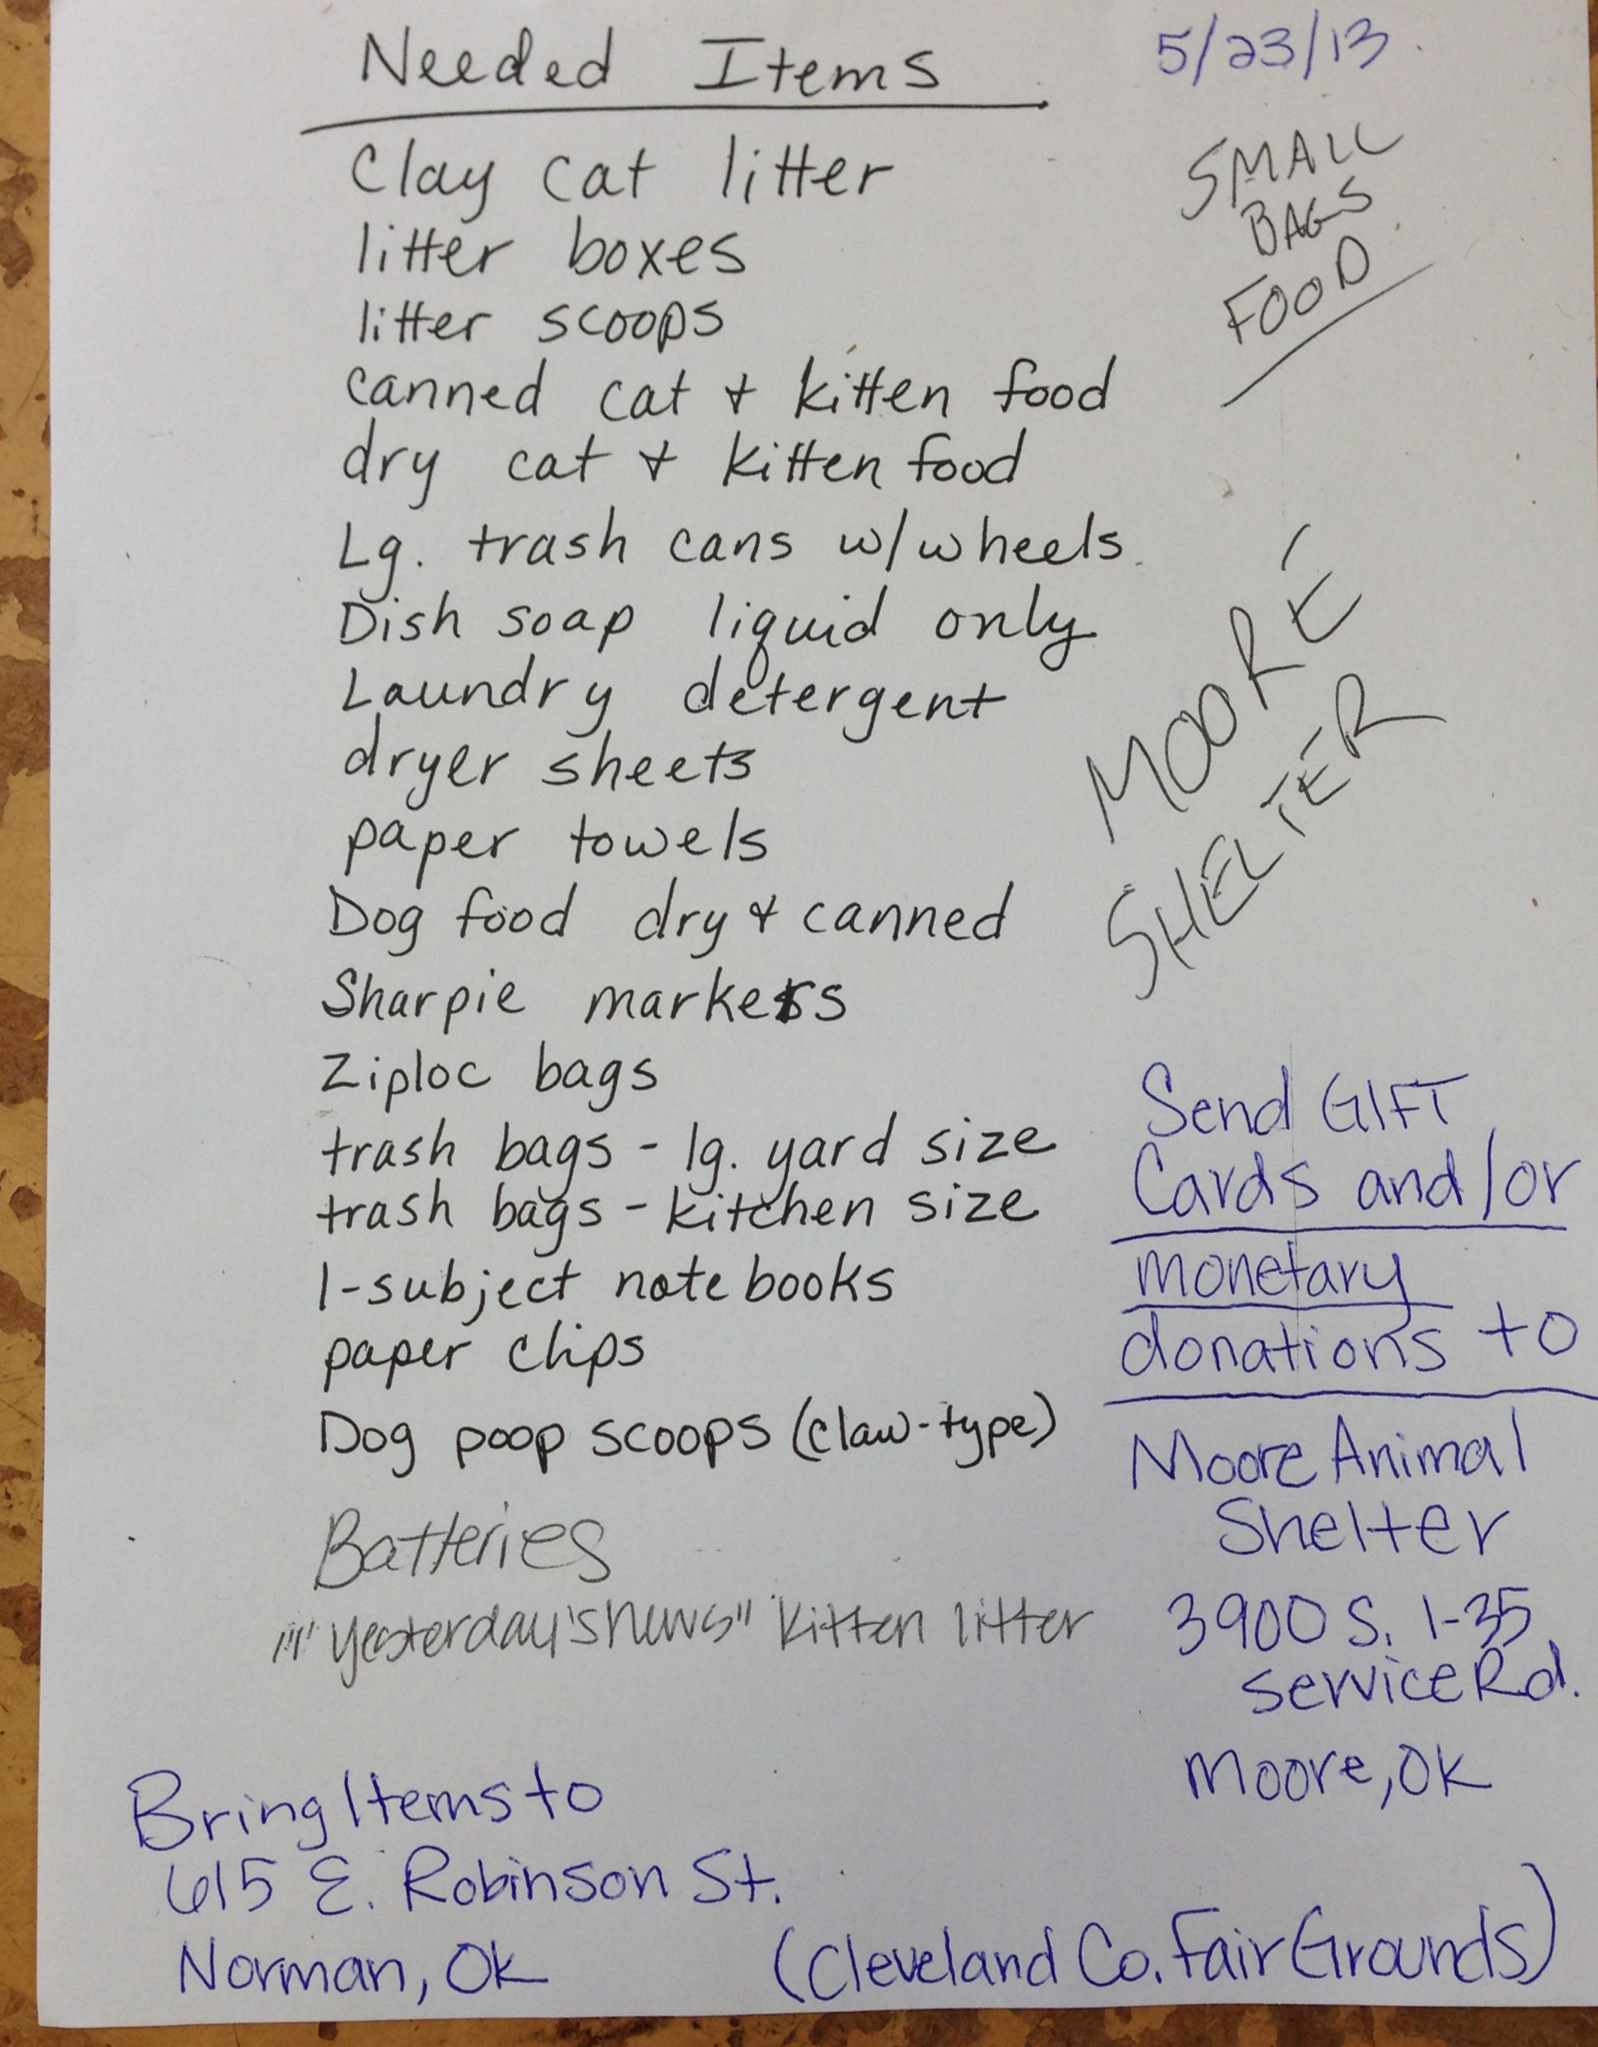 Needed Items
5/23/13
Clay cat litter
litter boxes
litter scoops
canned cat & kitten food
dry cat & kitten food
Lg. trash cans w/wheels
Dish soap liquid only
Laundry detergent
dryer sheets
paper towels
Dog food dry & canned
Sharpie markers
Ziploc bags
trash bags - lg. yard size
trash bags - kitchen size
1-subject notebooks
paper clips
Dog poop scoops (claw-type)
Batteries
"Yesterday's News" kitten litter
SMALL
BAGS
FOOD
MOORE
SHELTER
Send GIFT
Cards and/or
monetary
donations to
Moore Animal
Shelter
3900 S. I-35
Service Rd.
Moore, OK
Bring Items to
615 E. Robinson St.
Norman, OK
(Cleveland Co. Fair Grounds)